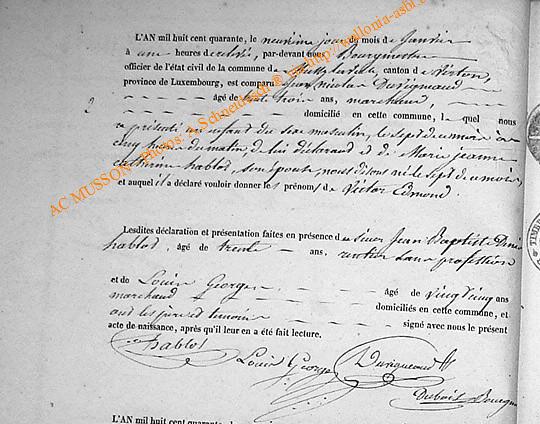 L'AN mil huit cent quarante, le neuvième jour du mois de Janvier
à une heures de relevée, par-devant nous Bourgmestre
officier de l'état civil de la commune de canton de Virton,
province de Luxembourg, est comparu Jean Nicolas Duvigneaud
âgé de trente trois ans, marchand,
2
domicilié en cette commune, lequel nous
a présenté un enfant du sexe masculin, le sept du mois à
cinq heures du matin, de lui déclarant et de Marie jeanne
catherine hablot, son épouse, nous disons né le sept du mois,
et auquel il a déclaré vouloir donner les prénoms de Victor Edmond.
Lesdites déclaration et présentation faites en présence de sieur Jean Baptiste
hablot, âgé de trente ans, rentier sans profession
et de Louis Georges âgé de vingt cinq ans
marchand domiciliés en cette commune, et
ont les père et témoins signé avec nous le présent
acte de naissance, après qu'il leur en a été fait lecture.
hablot
Louis Georges
Duvigneaud
Dubois Bourgm
L'AN mil huit cent quarante, le
AC MUSSON - Photos: A. Schneidesch @ http://wallonia-asbl
TIMBRE